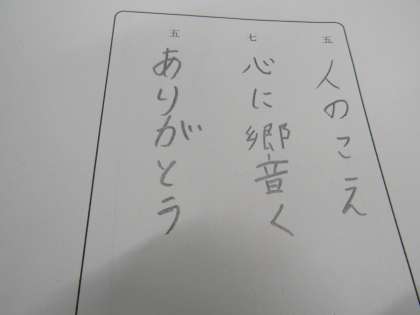 五
人のこえ
七
心に響く
五
ありがとう